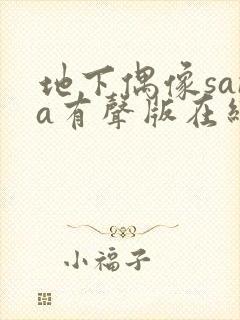 地下偶像sa
a有聲版在
小福子